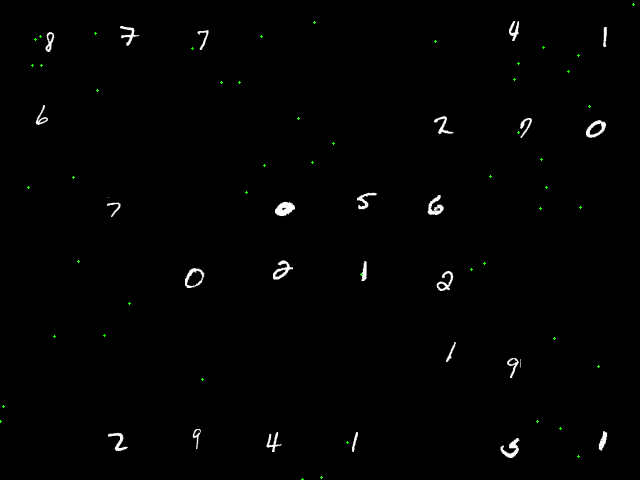 8 7 7 4 1
6 2 7 0
7 0 5 6
0 2 1 2
1 9
2 9 4 1 5 1